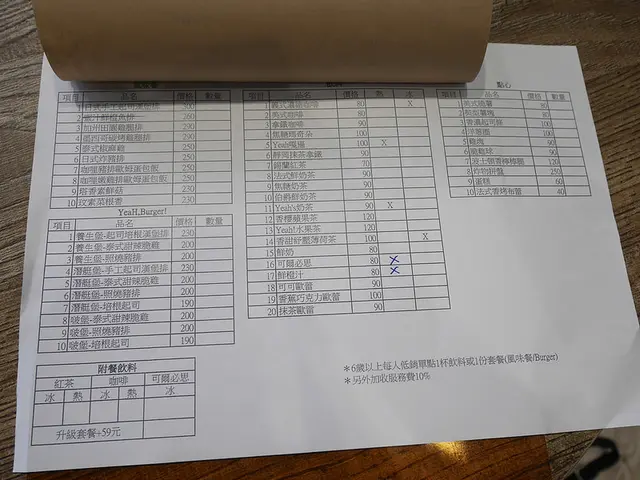 項目 品名 價格 數量
1 日式手工起司漢堡排 300
2 鮮橙魚排 260
3 加州田園雞腿排 290
4 墨西哥碳烤雞腿排 290
5 泰式椒麻雞 250
6 日式炸豬排 250
7 咖哩豬排歐姆蛋包飯 250
8 咖哩雞排歐姆蛋包飯 250
9 塔香素鮮菇 230
10 玫素菜根香 230
YeaH,Burger!
項目 品名 價格 數量
1 養生堡-起司培根漢堡排 230
2 養生堡-泰式甜辣脆雞 200
3 養生堡-照燒豬排 200
4 潛艇堡-手工起司漢堡排 230
5 潛艇堡-泰式甜辣脆雞 200
6 潛艇堡-照燒豬排 200
7 潛艇堡-培根起司 190
8 啵堡-泰式甜辣脆雞 200
9 啵堡-照燒豬排 200
10 啵堡-培根起司 190
附餐飲料
紅茶 咖啡 可爾必思
冰 熱 冰 熱 冰
升級套餐+59元
項目 品名 價格 熱 冰
1 義式濃縮咖啡 80 X
2 美式咖啡 80
3 拿鐵咖啡 90
4 焦糖瑪奇朵 100
5 Yeah嘎逼 100 X
6 靜岡抹茶拿鐵 90
7 錫蘭紅茶 70
8 法式鮮奶茶 80
9 焦糖奶茶 90
10 伯爵鮮奶茶 100
11 Yeah's奶茶 90 X
12 香檬蘋果茶 120
13 Yeah!水果茶 120
14 香甜紓壓薄荷茶 100 X
15 鮮奶 80
16 可爾必思 80 X
17 鮮橙汁 80 X
18 可可歐蕾 90
19 香蕉巧克力歐蕾 100
20 抹茶歐蕾 90
點心
項目 品名 價格 數量
1 美式脆薯 80
2 80
3 100
4 100
5 雞塊 90
6 脆雞球 90
7 120
8 炸物拼盤 250
9 蛋糕 60
10 法式香烤布蕾 40
＊6歲以上每人低銷單點1杯飲料或1份套餐(風味餐/Burger)
＊另外加收服務費10%